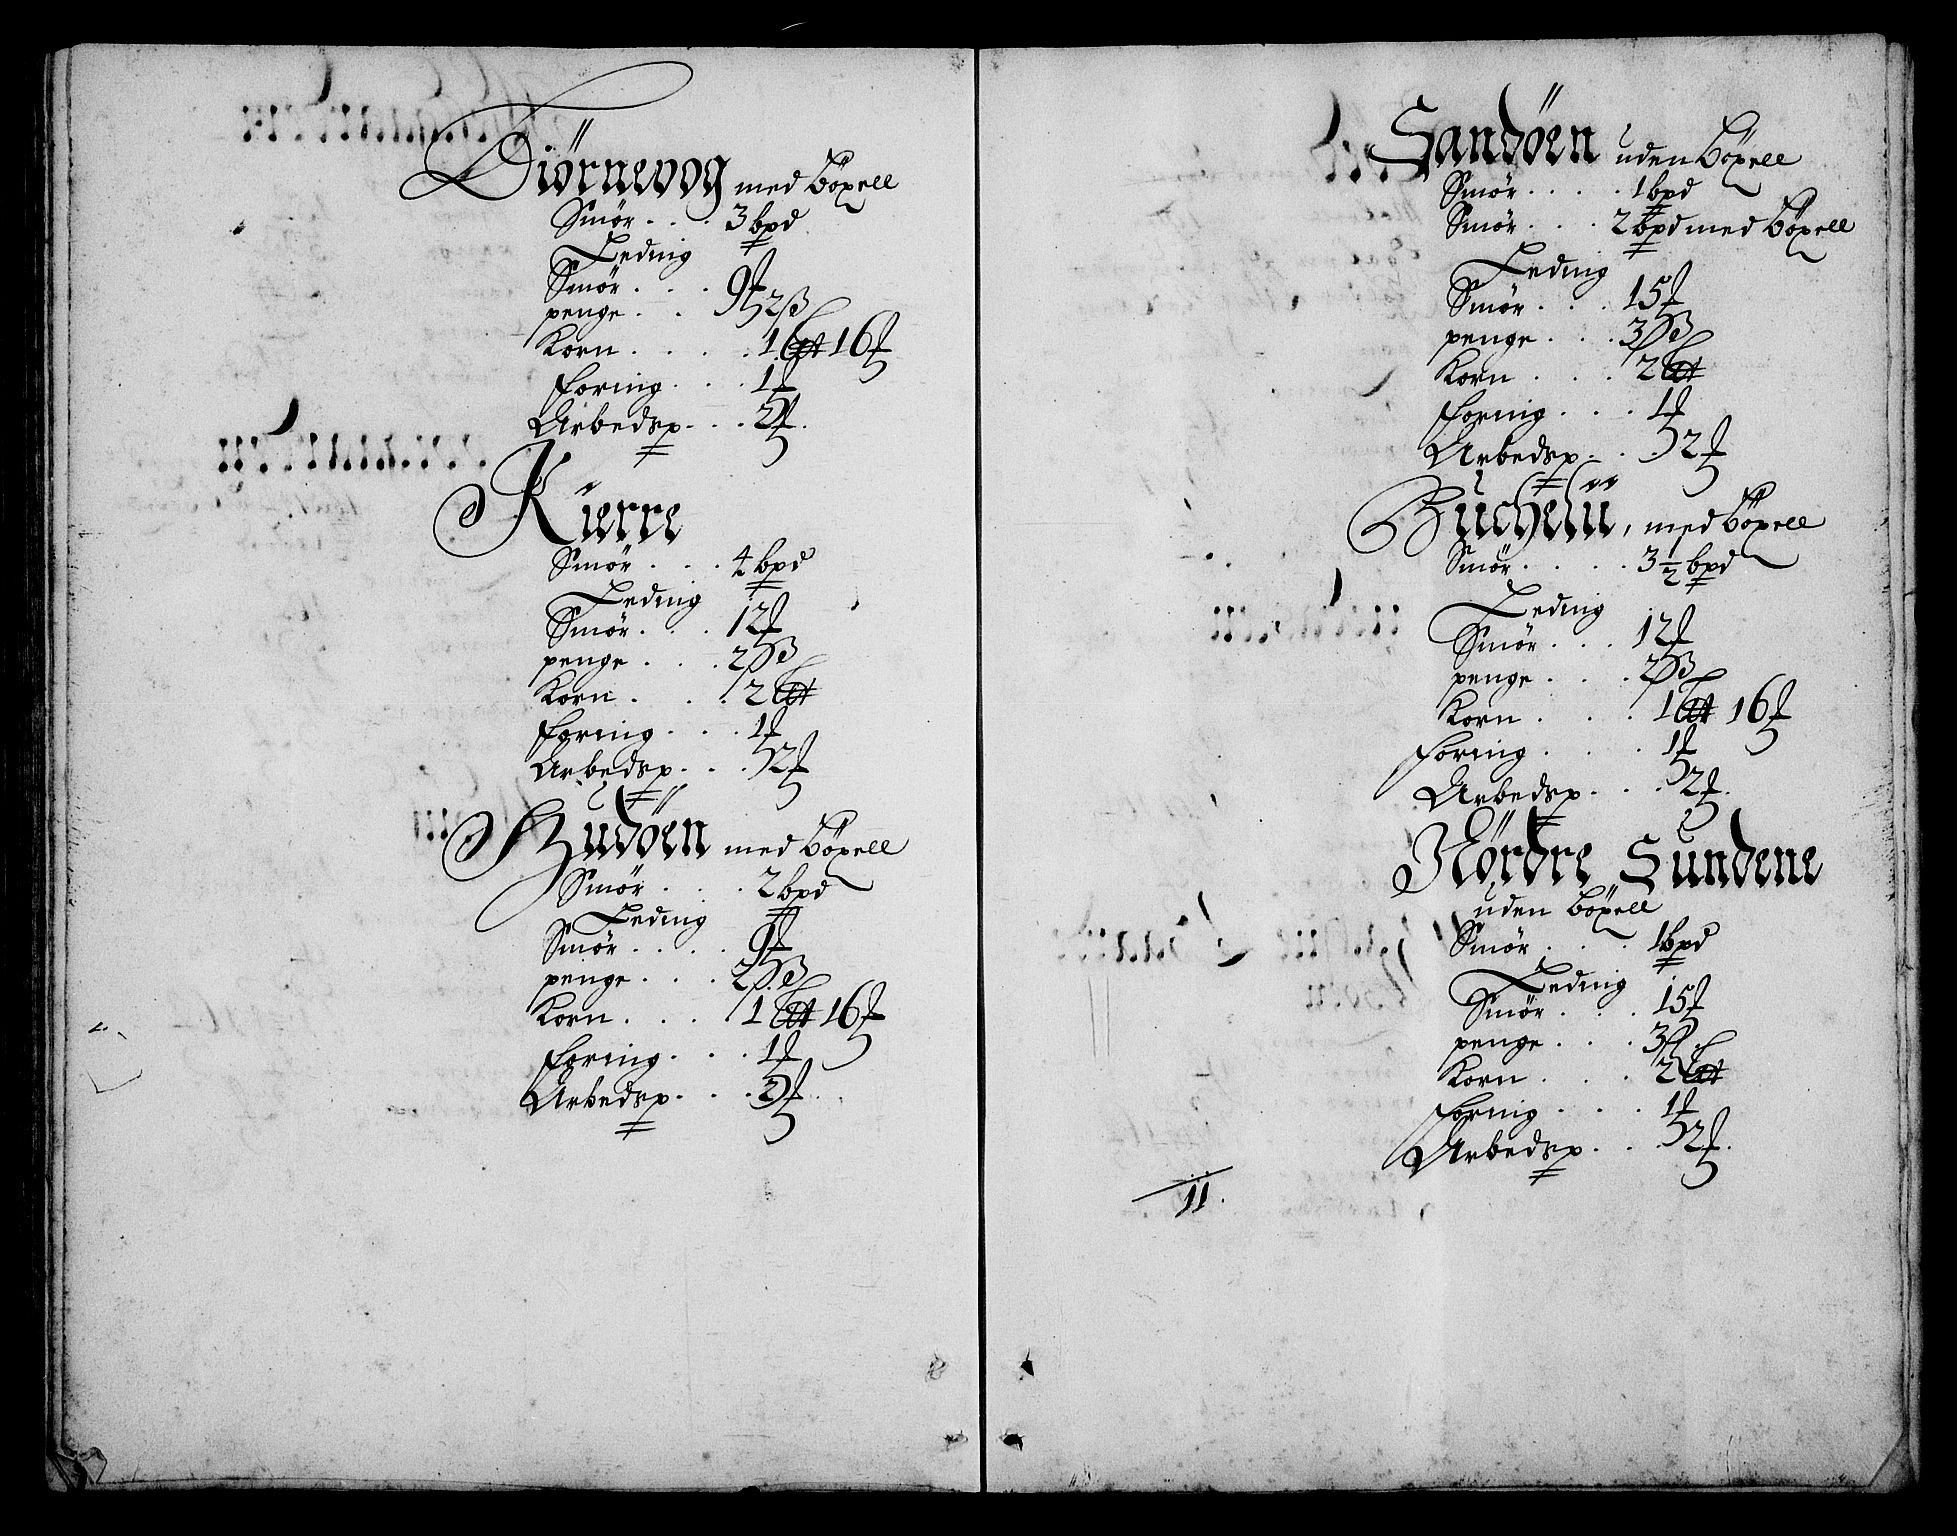 Diörnevog med böxell
Smör . . . 3 bpd
Leding
Smör . . . 9 ₰
penge . . 2 ß
Korn . . . . . 1 lct 16 ₰
foring . . . 1 ₰
Arbedsp . . . 2 ₰.
Kierre
Smör . . . . 4 bpd
Leding
Smör . . . 12 ₰
penge . . . . 2 ß
Korn . . . . 2 lct
foring . . . . 1 ₰
Arbedsp . . . 2 ₰
Hudöen med böxell
Smör . . . . 2 bpd
Leding
Smör . . . . 9 ₰
penge . . . . 2 ß
Korn . . . . . 1 lct 16 ₰
foring . . . . 1 ₰
Arbedsp . . . . 2 ₰
Sandöen uden böxell
Smör . . . . . 1 bpd
Smör . . . . 2 bpd med böxell
Leding
Smör . . . . 15 ₰
penge . . . . 3 ß
Korn . . . . 2 lct
foring . . . . 1 ₰
Arbedsp . . . 2 ₰
med böxell
Smör . . . . . 3 1/2 bpd
Leding
Smör . . . . 12 ₰
penge . . . . 2 ß
Korn . . . . 1 lct 16 ₰
foring . . . . 1 ₰
Arbedsp . . . . 2 ₰.
Nördre Sundene
uden böxell
Smör . . . . 1 bpd
Leding
Smör . . . . 15 ₰
penge . . . . 3 ß
Korn . . . . 2 lct
foring . . . . 1 ₰
Arbedsp . . . . 2 ₰.
11.